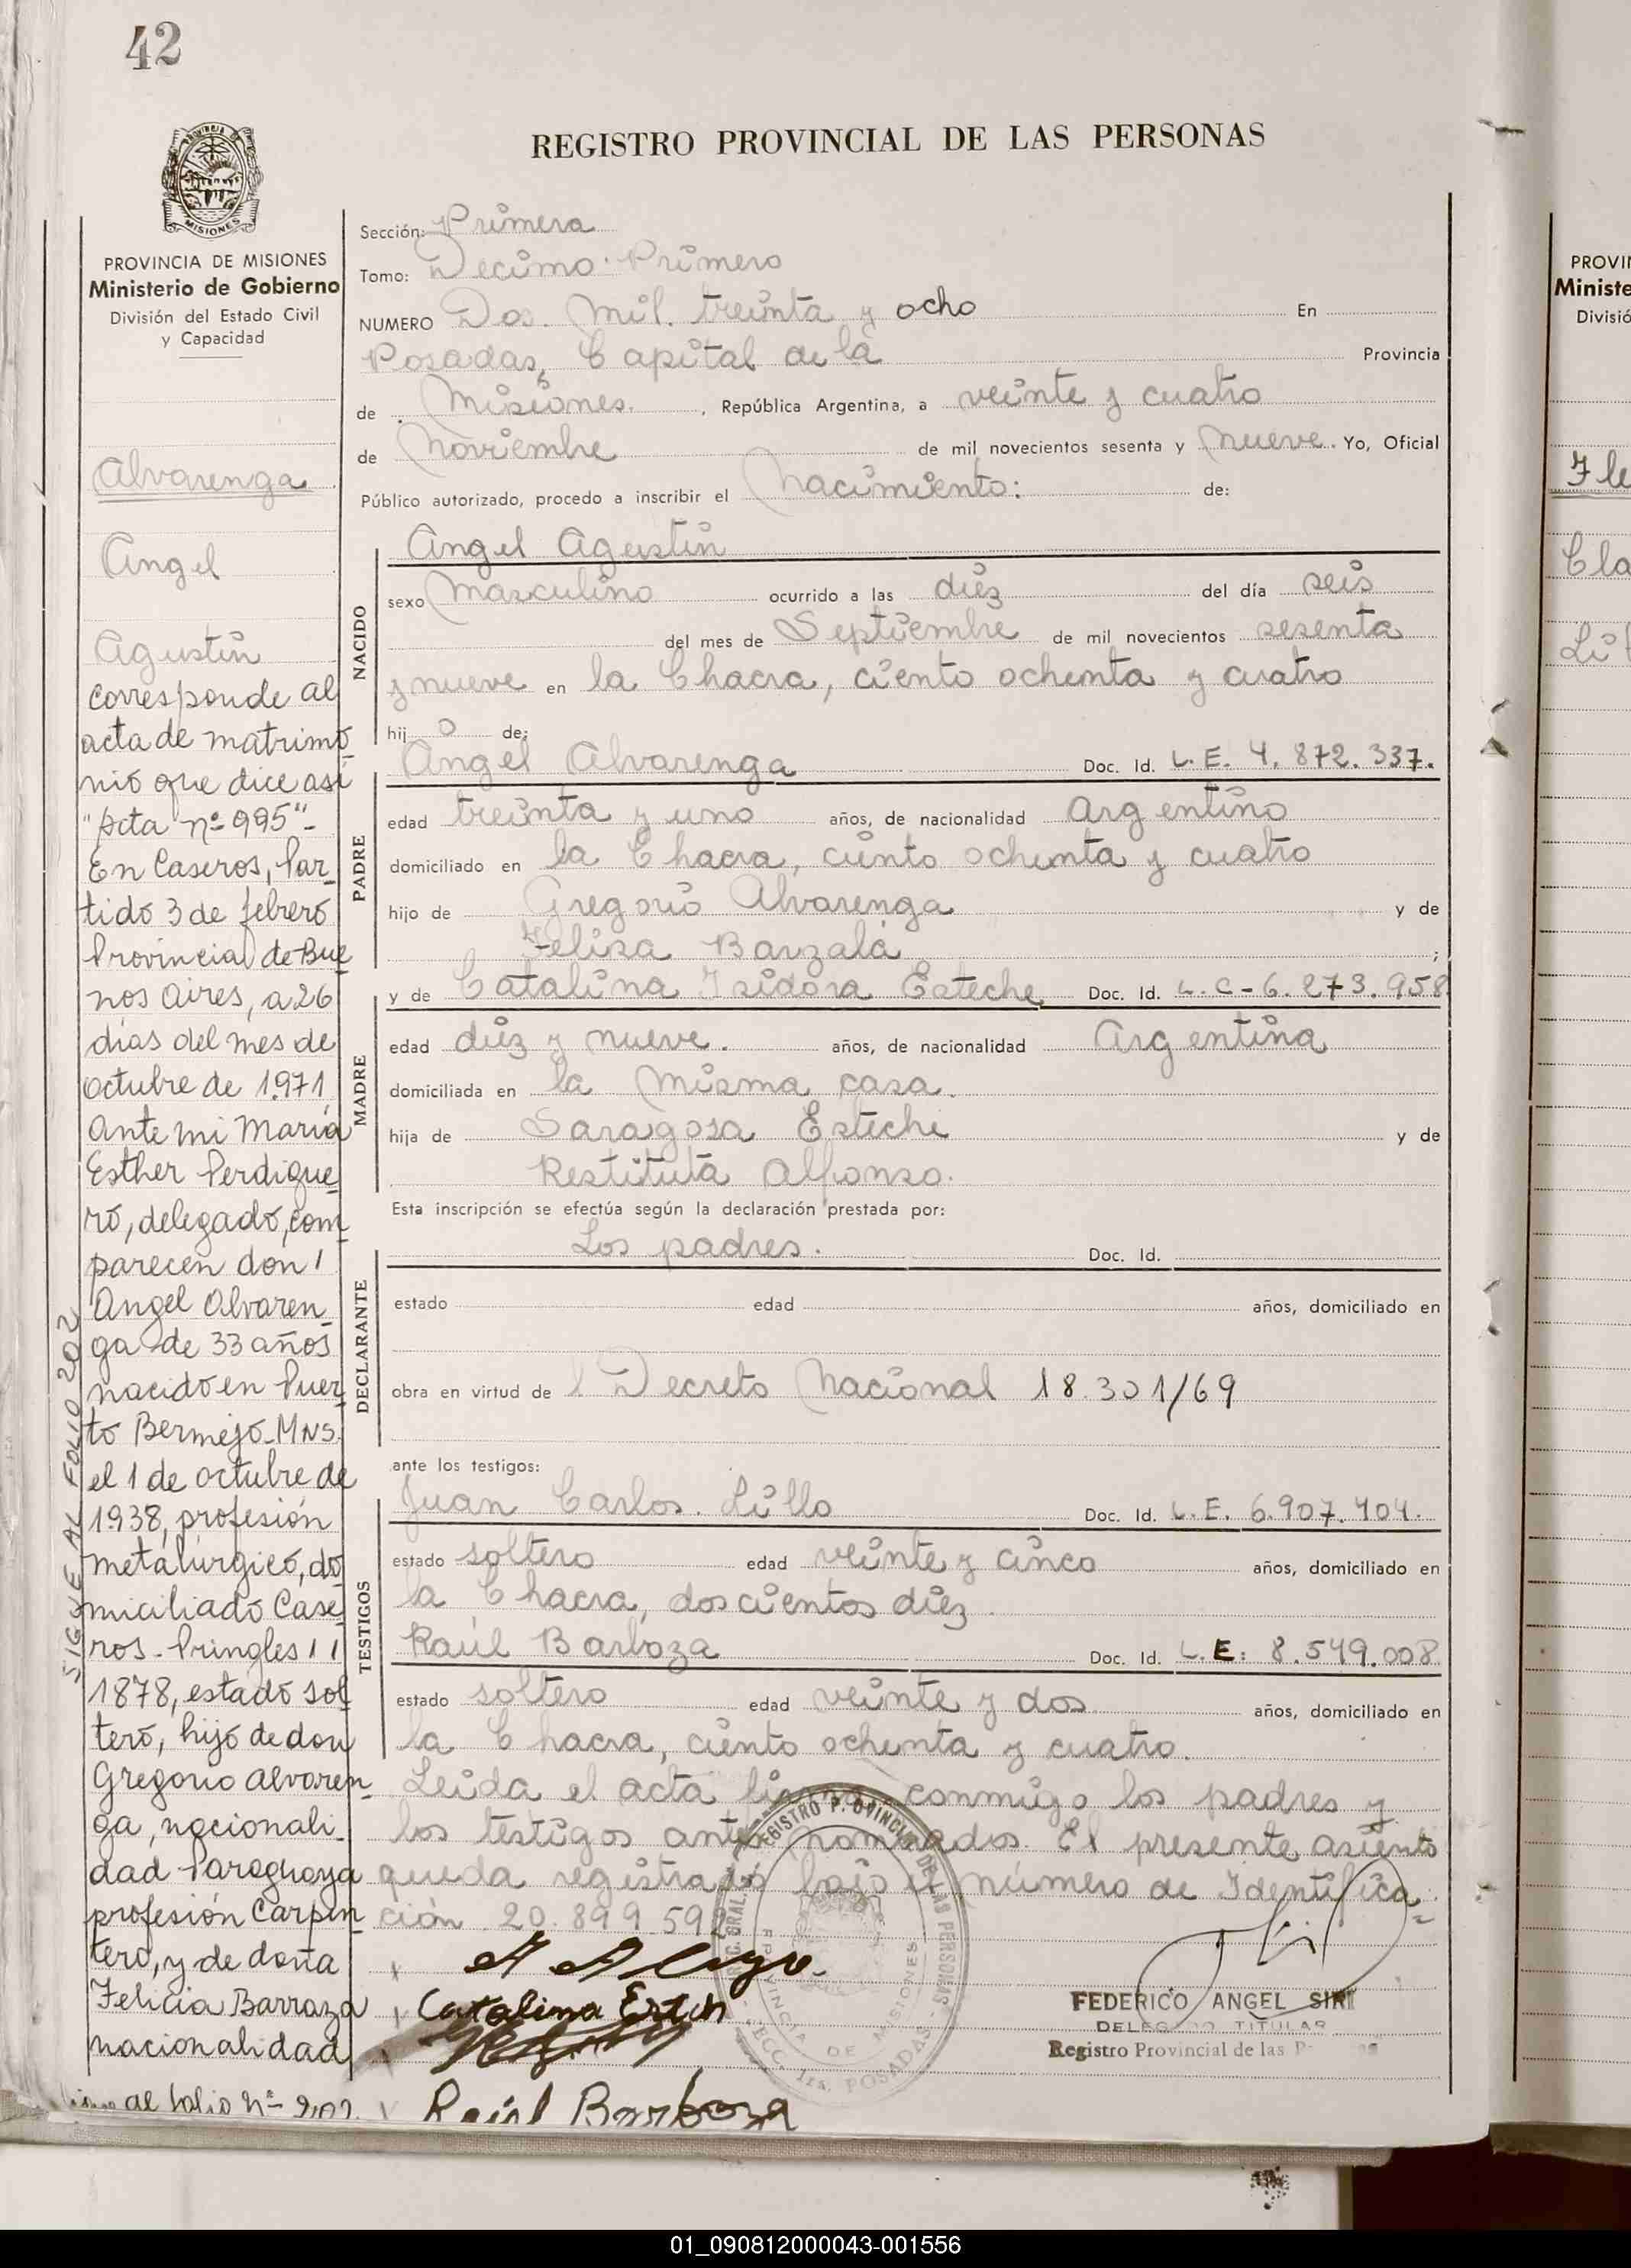 42
REGISTRO PROVINCIAL DE LAS PERSONAS
MISIONES
PROVINCIA DE MISIONES
Ministerio de Gobierno
División del Estado Civil
y Capacidad
Alvarenga
Angel
Agustin
corresponde al
acta de matrimo
nio que dice asi
"Acta nº 995"-
En Caseros, Par_
tido 3 de febrero
Provincia de Bue
nos Aires, a 26
dias del mes de
octubre de 1971
ante mi María
Esther Perdigue_
ro, delegado, com
parecen don /
Angel Alvaren_
ga de 33 años
nacido en Puer_
to Bermejo-MNS.
el 1 de octubre de
1938, profesión
metalurgico, do_
miciliado Case_
ros-Pringles //
1878, estado sol_
tero, hijo de don
Gregorio Alvaren_
ga, nacionali_
dad Paraguaya
profesión Carpin_
tero, y de doña
Felicia Barraza
nacionalidad
al folio Nº 202.
SIGUE AL FOLIO 202
Sección: Primera
Tomo: Decimo Primero
NUMERO Dos. Mil. treinta y ocho En
Posadas, Capital de la Provincia
de Misiones. , República Argentina, a veinte y cuatro
de Noviembre de mil novecientos sesenta y nueve. Yo, Oficial
Público autorizado, procedo a inscribir el Nacimiento: de:
NACIDO
Angel Agustin
sexo Masculino ocurrido a las diez del día seis
del mes de Septiembre de mil novecientos sesenta
y nueve en la Chacra, ciento ochenta y cuatro
hij o de:
PADRE
Angel Alvarenga Doc. Id. L.E. 4.872.337.
edad treinta y uno años, de nacionalidad Argentino
domiciliado en la Chacra, ciento ochenta y cuatro
hijo de Gregorio Alvarenga y de
Felisa Barzala ;
MADRE
y de Catalina Isidora Esteche Doc. Id. L.C-6.273.958
edad diez y nueve. años, de nacionalidad Argentina
domiciliada en la misma casa.
hija de Saragosa Esteche y de
Restituta Alfonso.
Esta inscripción se efectúa según la declaración prestada por:
DECLARANTE
Los padres. Doc. Id.
estado edad años, domiciliado en
obra en virtud de l Decreto Nacional 18.301/69
ante los testigos:
TESTIGOS
Juan Carlos. Lillo Doc. Id. L.E. 6.907.404.
estado soltero edad veinte y cinco años, domiciliado en
la Chacra, doscientos diez
Raúl Barboza Doc. Id. L.E: 8.549.008
estado soltero edad veinte y dos años, domiciliado en
la Chacra, ciento ochenta y cuatro.
Leida el acta conmigo los padres y
los testigos antes nombrados. El presente asiento
queda registrado bajo el número de Identifica_
ción 20.899.59
Catalina
Raúl Barboza
FEDERICO ANGEL SIRI
DELEGADO TITULAR
Registro Provincial de las
PROVIN
Ministe
Divisió
Fle
Cla
01_090812000043-001556